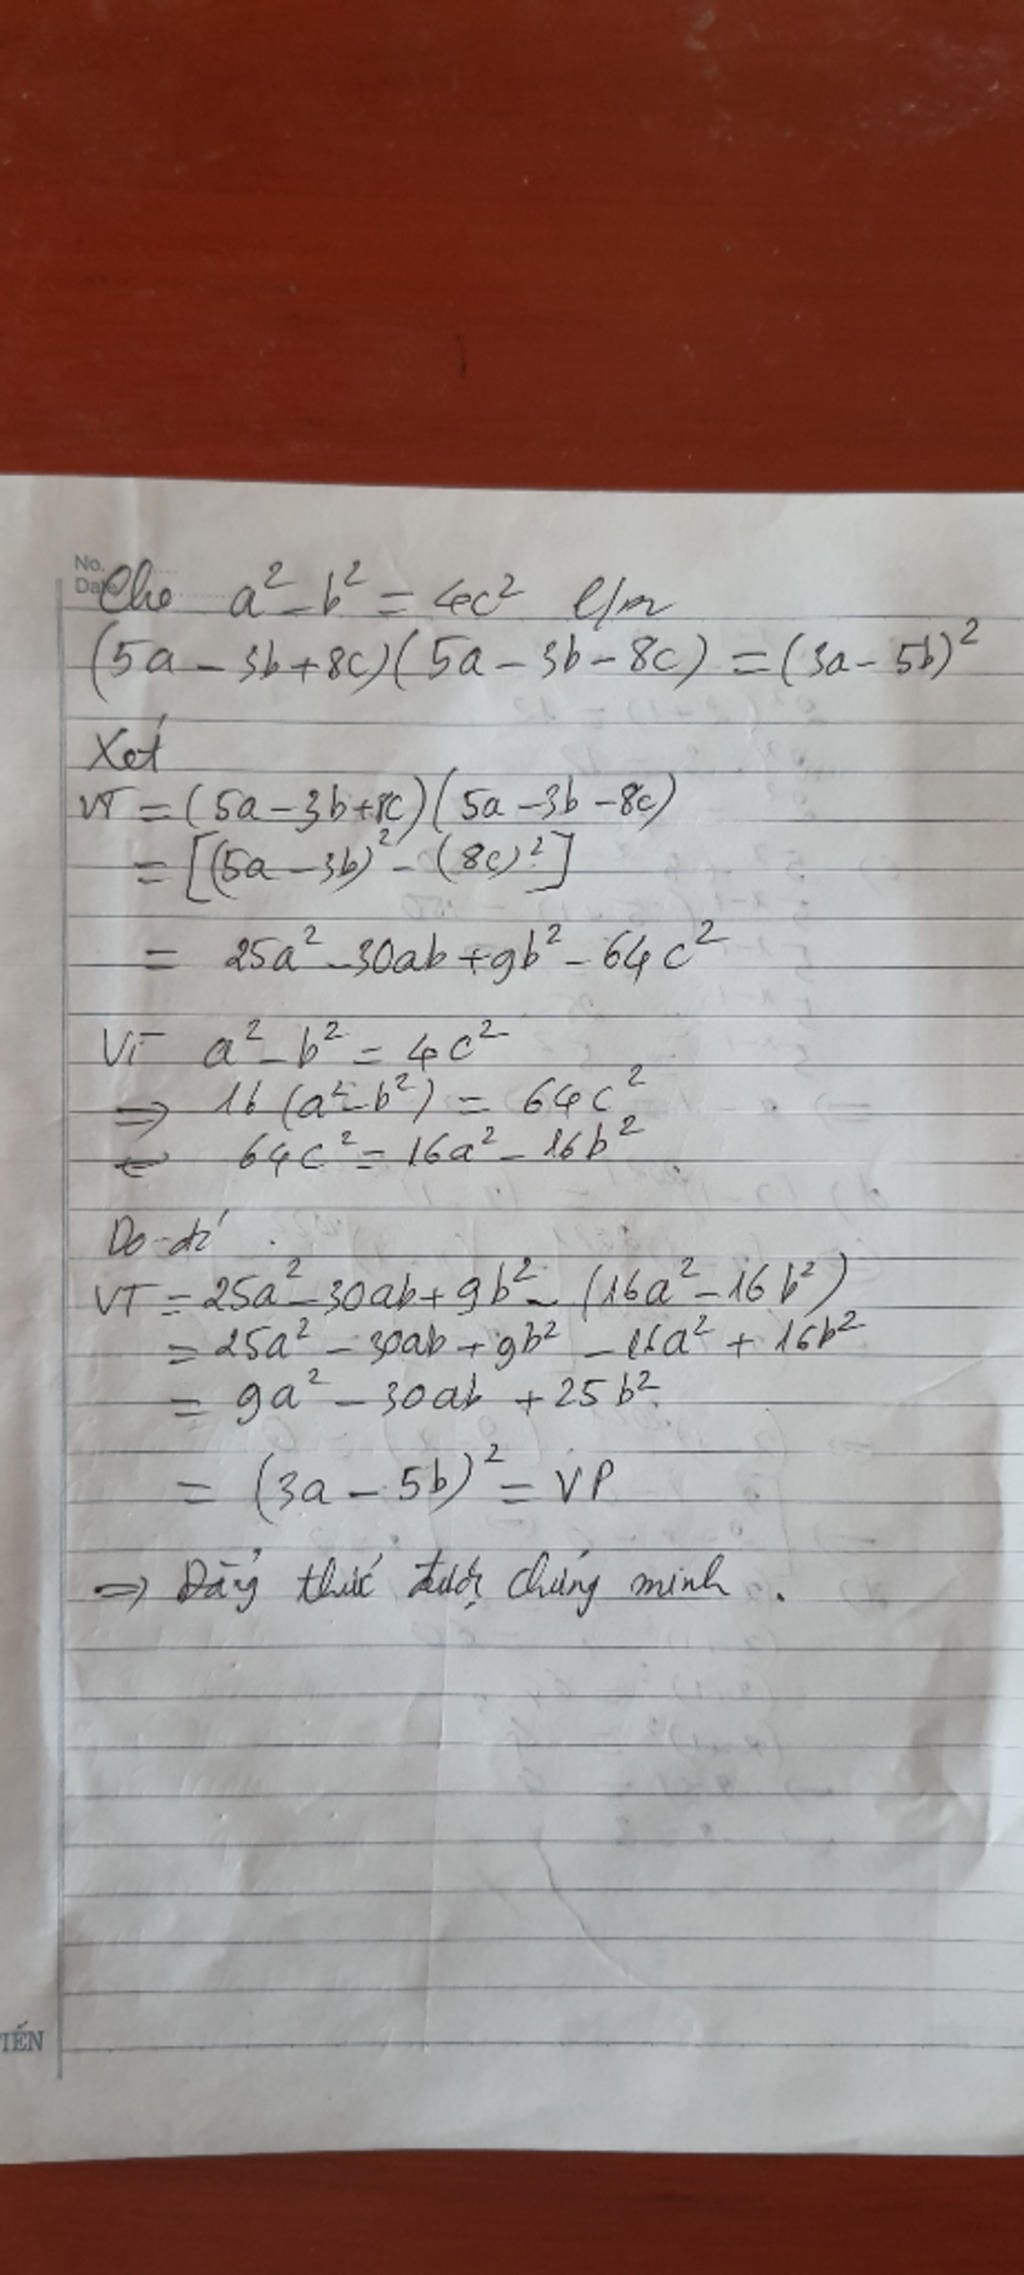 No.
Date
Cho a² - b² = 4c² c/m
(5a - 3b + 8c)(5a - 3b - 8c) = (3a - 5b)²
Xét
VT = (5a - 3b + 8c)(5a - 3b - 8c)
= [(5a - 3b)² - (8c)²]
= 25a² - 30ab + 9b² - 64c²
Vì a² - b² = 4c²
⇒ 16(a² - b²) = 64c²
64c² = 16a² - 16b²
Do đó
VT = 25a² - 30ab + 9b² - (16a² - 16b²)
= 25a² - 30ab + 9b² - 16a² + 16b²
= 9a² - 30ab + 25b²
= (3a - 5b)² = VP
⇒ Đẳng thức được chứng minh.
TIẾN